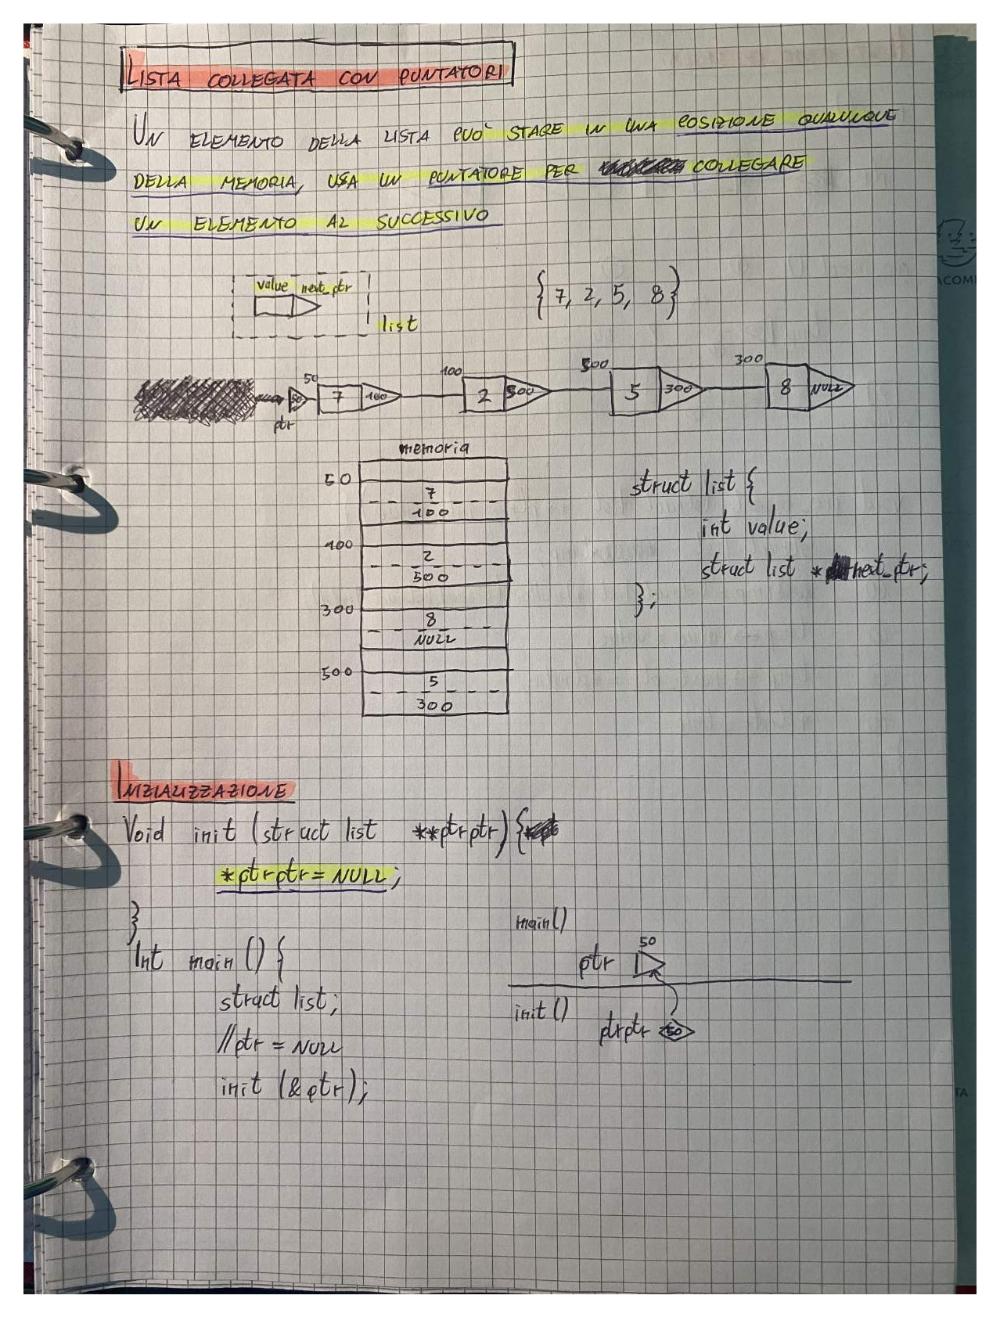 LISTA COLLEGATA CON PUNTATORI
UN ELEMENTO DELLA LISTA PUO' STARE IN UNA POSIZIONE QUALUNQUE
DELLA MEMORIA, USA UN PUNTATORE PER COLLEGARE
UN ELEMENTO AL SUCCESSIVO
value next_ptr
list
{7, 2, 5, 8}
50 100 500 300
50 7 100 2 500 5 300 8 NULL
ptr
memoria
50
7
100
100
2
500
300
8
NULL
500
5
300
struct list {
int value;
struct list *next_ptr;
};
INIZIALIZZAZIONE
Void init (struct list **ptrptr) {
*ptrptr = NULL;
}
Int main () {
struct list;
//ptr = NULL
init (&ptr);
main()
50
ptr
init ()
ptrptr 50